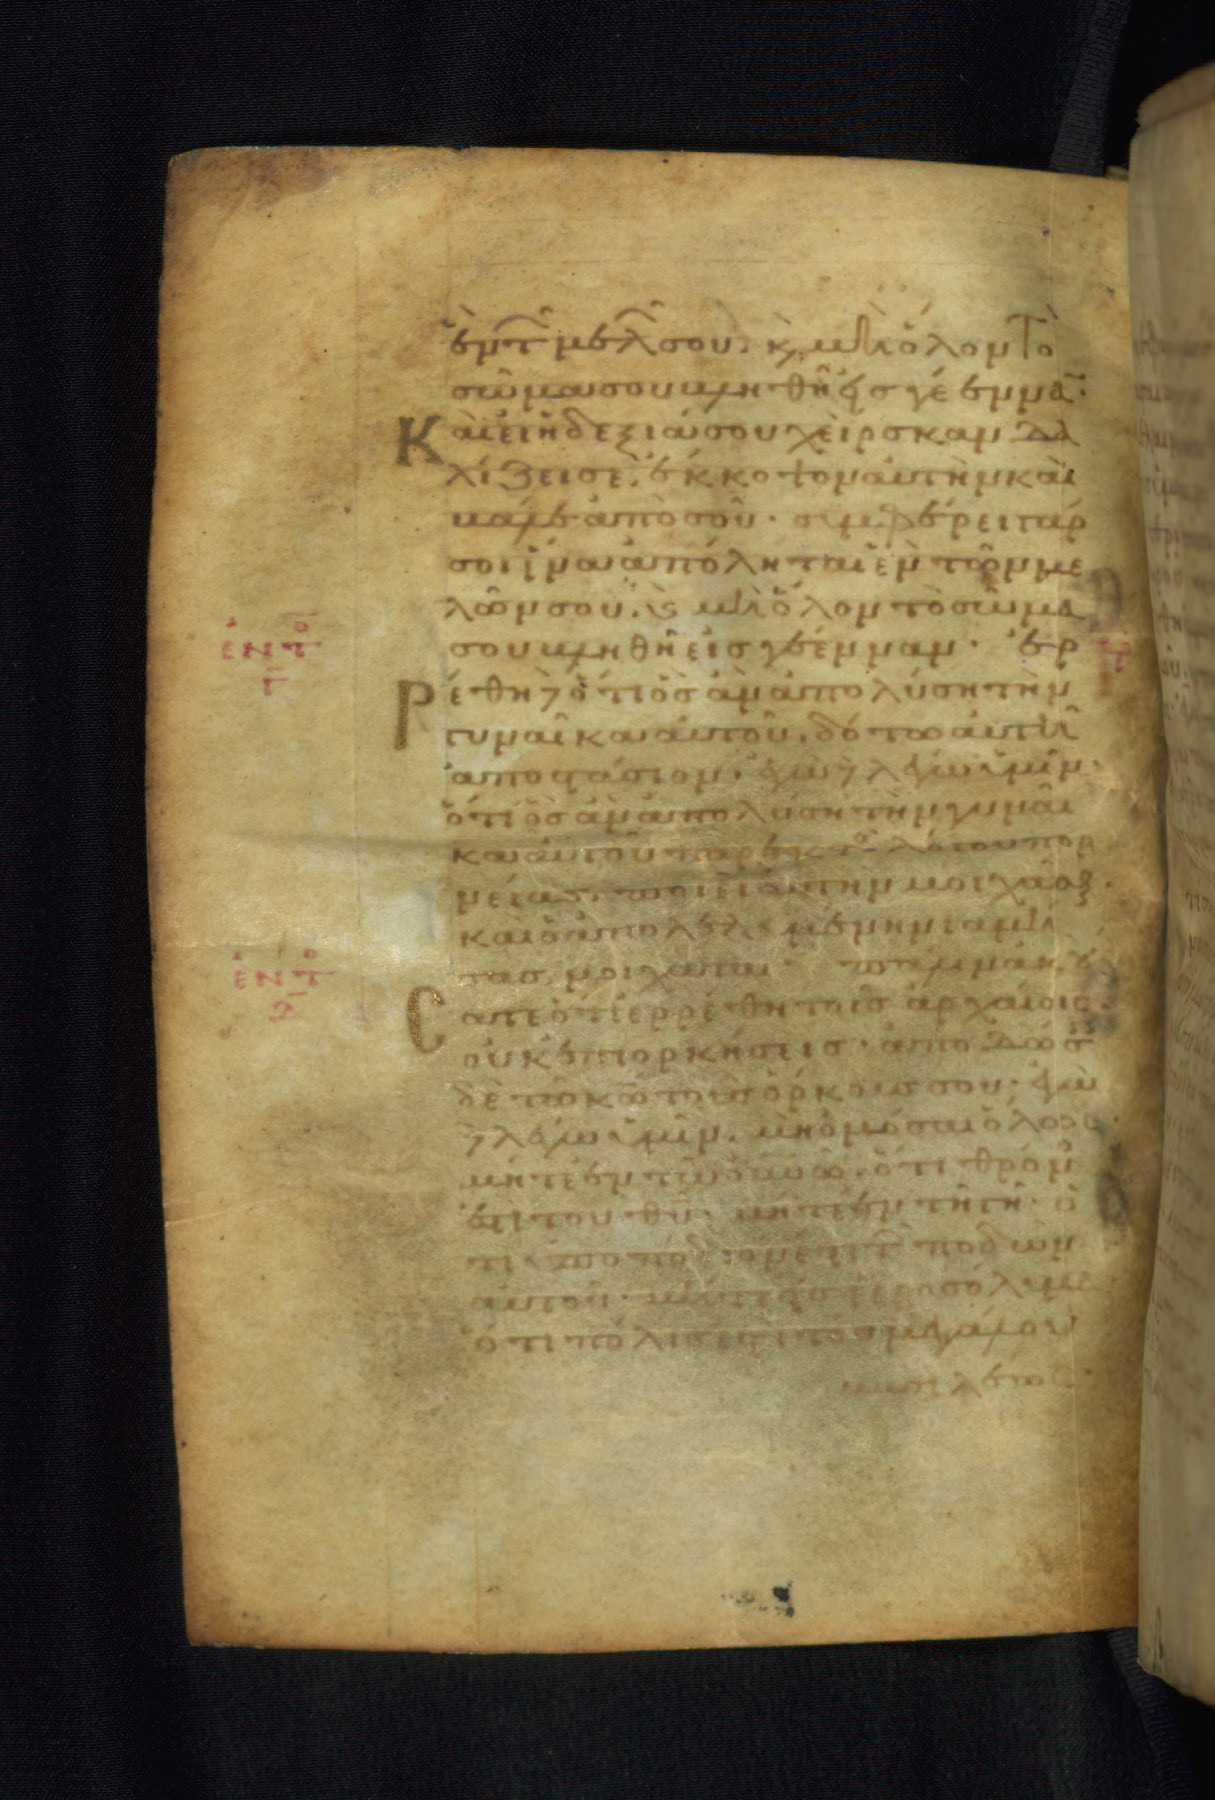 ἓν τῶν μελῶν σου. κ̀ μὴ ὅλον τὸ
σῶμα σου βληθῆ εἰς γέενναν·
Καὶ εἰ ἡ δεξιά σου χεὶρ σκανδα
λίζει σε. ἔκκοψον αὐτὴν καὶ
βάλε ἀπὸ σοῦ· συμφέρει γάρ
σοι ἵνα ἀπόληται ἓν τῶν με
λῶν σου. κς μὴ ὅλον τὸ σῶμα
σου βληθῆ εἰς γέενναν· ἐρ
Ρέθη δὲ ὅτι ὃς ἂν ἀπολύση τὴν
γυναῖκα αὐτοῦ. δότω αὐτῆ
ἀποστάσιον. ἐγὼ δὲ λέγω ὑμῖν.
ὅτι ὃς ἂν ἀπολύση τὴν γυναῖ
κα αὐτοῦ παρεκτὸς λόγου πορ
νείας. ποιεῖ αὐτὴν μοιχᾶσθ.
καὶ ὃς ἀπολελυμένην γαμή
σας, μοιχᾶται· πάλιν ἠκού
Σατε ὅτι ἐρρέθη τοῖς ἀρχαίοις.
οὐκ ἐπιορκήσεις· ἀποδώσεις
δὲ τῶ κω τοὺς ὅρκους σου· ἐγὼ
δὲ λέγω ὑμῖν. μὴ ὀμόσαι ὅλως.
μήτε ἐν τῶ οὐνω. ὅτι θρόνος
ἐστι του θυ· μήτε ἐν τῆ γῆ· ὅ
τι ὑποπόδιόν ἐστι τῶν ποδῶν
αὐτοῦ· μήτε εἰς ἱεροσόλυμα
ὅτι πόλις ἐστὶ τοῦ μεγάλου
βασιλέως.
ἐν τὸ
ἐν τὸ